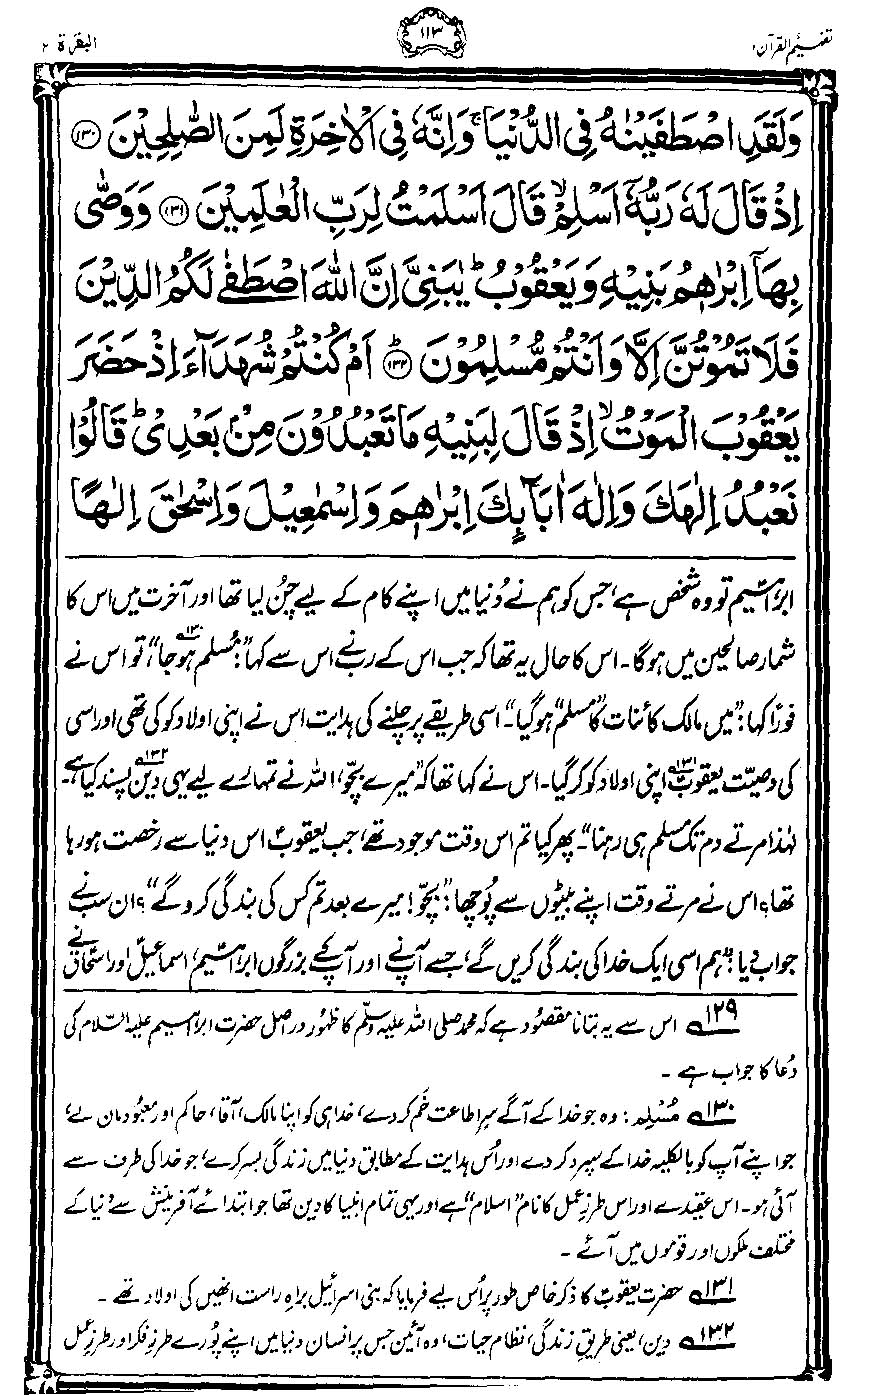 تفہیم القرآن ۱
۱۱۳
البقرۃ ۲
وَلَقَدِ اصْطَفَيْنٰهُ فِي الدُّنْيَا ۚ وَاِنَّهٗ فِي الْاٰخِرَةِ لَمِنَ الصّٰلِحِيْنَ ﴿۱۳۰﴾
اِذْ قَالَ لَهٗ رَبُّهٗٓ اَسْلِمْ ۙ قَالَ اَسْلَمْتُ لِرَبِّ الْعٰلَمِيْنَ ﴿۱۳۱﴾ وَوَصّٰى
بِهَآ اِبْرٰهٖمُ بَنِيْهِ وَيَعْقُوْبُ ؕ يٰبَنِيَّ اِنَّ اللّٰهَ اصْطَفٰى لَكُمُ الدِّيْنَ
فَلَا تَمُوْتُنَّ اِلَّا وَاَنْتُمْ مُّسْلِمُوْنَ ﴿۱۳۲﴾ؕ اَمْ كُنْتُمْ شُهَدَآءَ اِذْ حَضَرَ
يَعْقُوْبَ الْمَوْتُ ۙ اِذْ قَالَ لِبَنِيْهِ مَا تَعْبُدُوْنَ مِنْۢ بَعْدِيْ ؕ قَالُوْا
نَعْبُدُ اِلٰهَكَ وَاِلٰهَ اٰبَآئِكَ اِبْرٰهٖمَ وَاِسْمٰعِيْلَ وَاِسْحٰقَ اِلٰهًا
ابراہیمؑ تو وہ شخص ہے، جس کو ہم نے دُنیا میں اپنے کام کے لیے چُن لیا تھا اور آخرت میں اس کا
شمار صالحین میں ہوگا۔ اس کا حال یہ تھا کہ جب اس کے رب نے اس سے کہا: ”مُسلم۱۳۰ ہوجا“، تو اس نے
فوراً کہا: ”میں مالک کائنات کا ”مسلم“ ہوگیا“۔ اسی طریقے پر چلنے کی ہدایت اس نے اپنی اولاد کو کی تھی اور اسی
کی وصیّت یعقوبؑ۱۳۱ اپنی اولاد کو کر گیا۔ اس نے کہا تھا کہ ”میرے بچّو، اللہ نے تمہارے لیے یہی دین۱۳۲ پسند کیا ہے۔
لہٰذا مرتے دم تک مسلم ہی رہنا“۔ پھر کیا تم اس وقت موجود تھے، جب یعقوبؑ اس دنیا سے رخصت ہو رہا
تھا؟ اس نے مرتے وقت اپنے بیٹوں سے پُوچھا: ”بچّو! میرے بعد تم کس کی بندگی کرو گے“؟ ان سب نے
جواب دیا: ”ہم اسی ایک خدا کی بندگی کریں گے، جسے آپ نے اور آپ کے بزرگوں ابراہیمؑ، اسماعیلؑ اور اسحاقؑ نے
۱۲۹؎ اس سے یہ بتانا مقصُود ہے کہ محمد صلی اللہ علیہ وسلّم کا ظہُور دراصل حضرت ابراہیم علیہ السّلام کی
دُعا کا جواب ہے ۔
۱۳۰؎ مُسْلِم: وہ جو خدا کے آگے سرِ اطاعت خَم کردے، خدا ہی کو اپنا مالک، آقا، حاکم اور معبُود مان لے،
جو اپنے آپ کو بالکلیہ خدا کے سپرد کر دے اور اُس ہدایت کے مطابق دنیا میں زندگی بسر کرے، جو خدا کی طرف سے
آئی ہو۔ اس عقیدے اور اس طرزِ عمل کا نام ”اسلام“ ہے اور یہی تمام انبیا کا دین تھا جو ابتدائے آفرینش سے دُنیا کے
مختلف ملکوں اور قوموں میں آئے ۔
۱۳۱؎ حضرت یعقوبؑ کا ذکر خاص طور پر اُس لیے فرمایا کہ بنی اسرائیل براہِ راست انھیں کی اولاد تھے ۔
۱۳۲؎ دین، یعنی طریقِ زندگی، نظامِ حیات، وہ آئین جس پر انسان دنیا میں اپنے پُورے طرزِ فکر اور طرزِ عمل